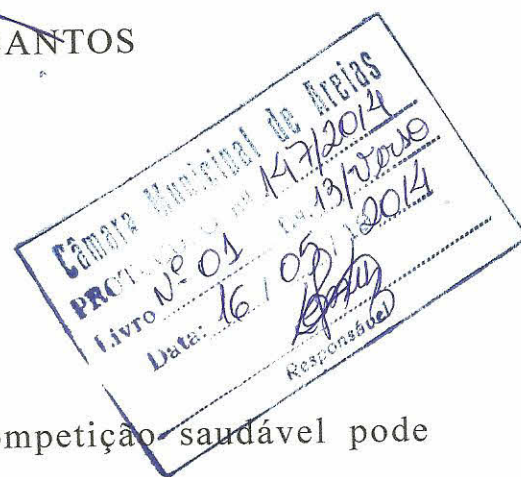 SANTOS
Câmara Municipal de Areias
PROTOCOLO nº 147/2014
Livro Nº 01 13/Verso
Data: 16 / 05 / 2014
Responsável
competição saudável pode